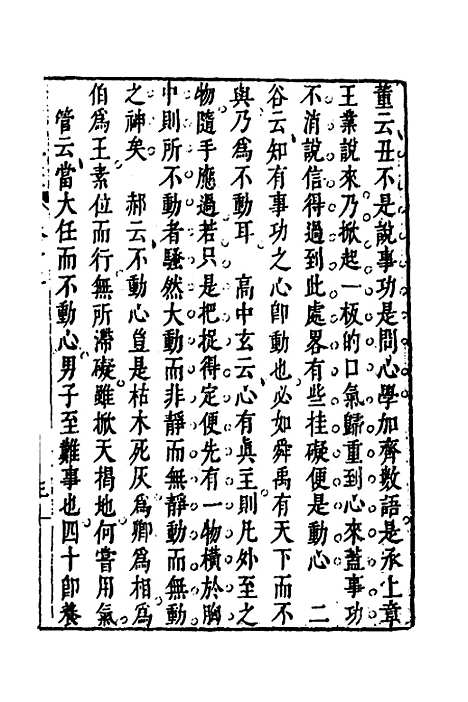 董云丑不是說事功是問心學加齊數語是承上章
王業說來乃掀起一板的口氣歸重到心來蓋事功
不消說信得過到此處畧有些挂礙便是動心　二
谷云知有事功之心卽動也必如舜禹有天下而不
與乃爲不動耳　高中玄云心有眞主則凡外至之
物隨手應過若只是把捉得定便先有一物橫於胸
中則所不動者騷然大動而非靜而無靜動而無動
之神矣　郝云不動心豈是枯木死灰爲卿爲相爲
伯爲王素位而行無所滯礙雖掀天揭地何嘗用氣
管云當大任而不動心男子至難事也四十卽養